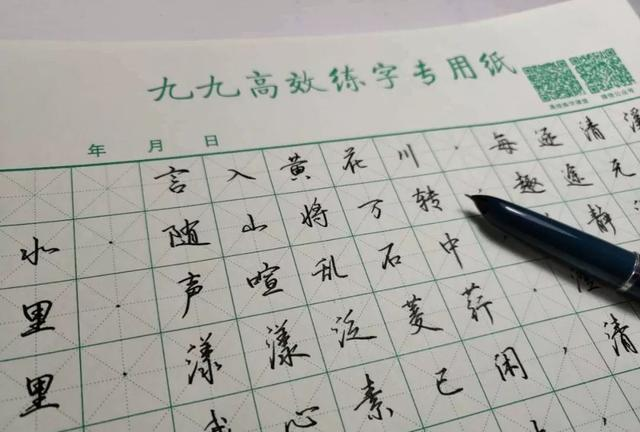 九九高效练字专用纸
年 月 日
言入黄花川，每逐清溪
水。随山将万转，趣途无
里。声喧乱石中，静
里。漾漾泛菱荇，澄
我心素已闲，清